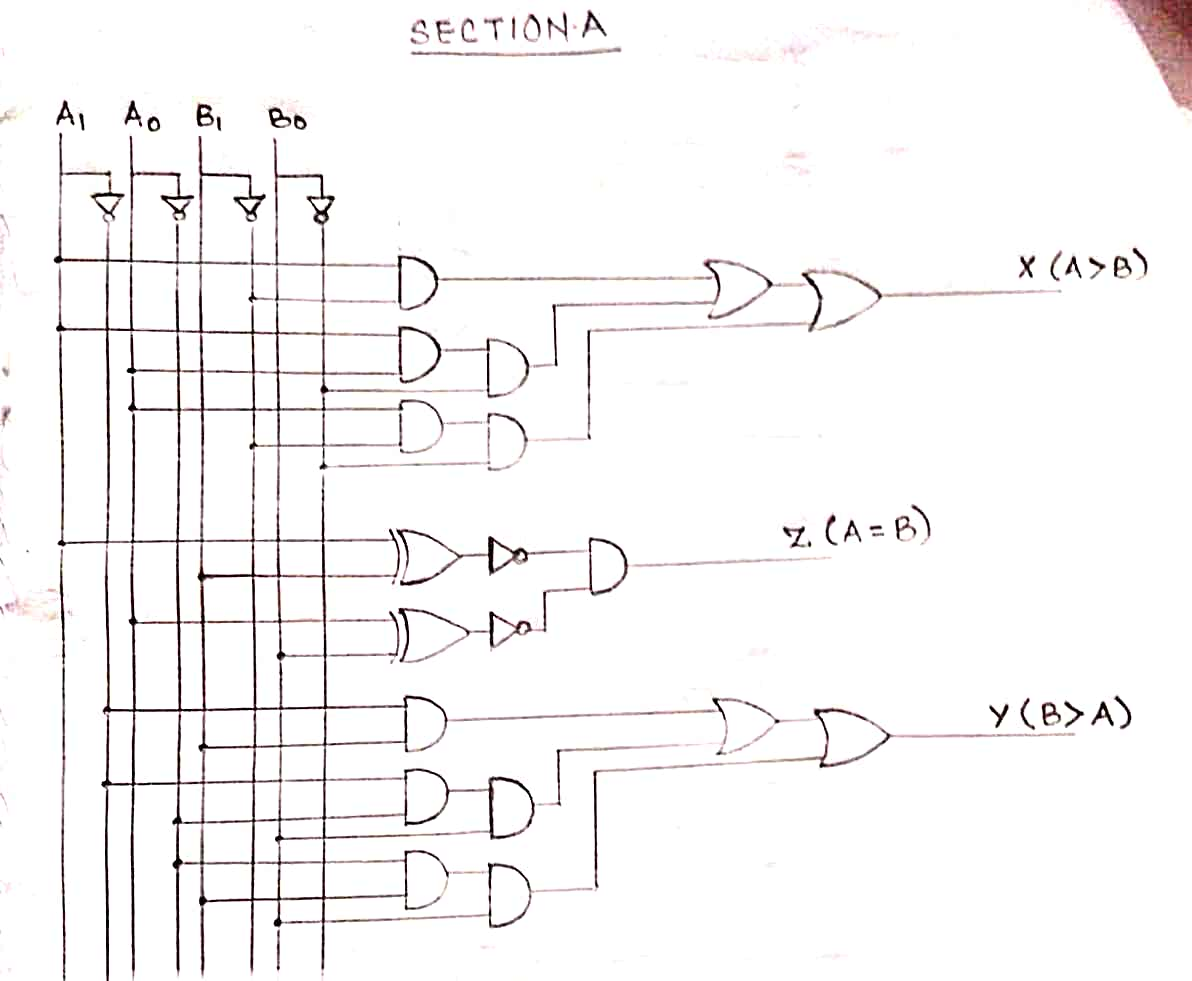 SECTION·A
A1 A0 B1 B0
X (A>B)
Z. (A=B)
Y (B>A)